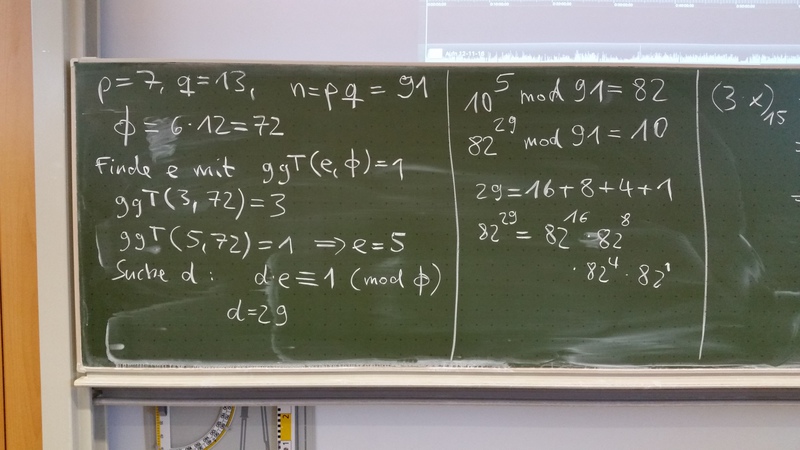 p=7, q=13, n=pq = 91
ϕ = 6·12=72
Finde e mit ggT(e,ϕ)=1
ggT(3,72)=3
ggT(5,72)=1 ⟹ e=5
Suche d: d·e≡1 (mod ϕ)
d=29
10^5 mod 91=82
82^29 mod 91=10
29=16+8+4+1
82^29 = 82^16 · 82^8
· 82^4 · 82^1
(3·x)_15
=
=